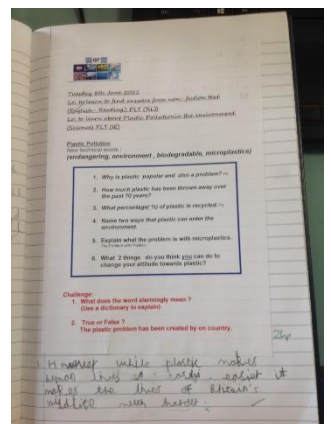 Tuesday 6th June 2023
Lo: to learn to find answers from non-fiction text
(English- Reading) PLT (RL))
Lo: to learn about Plastic Pollution in the environment
(Science) PLT (IE)
Plastic Pollution
New technical words :
(endangering, environment , biodegradable, microplastics)
1. Why is plastic popular and also a problem?
2. How much plastic has been thrown away over
the past 70 years?
3. What percentage( %) of plastic is recycled
4. Name two ways that plastic can enter the
environment.
5. Explain what the problem is with microplastics.
6. What 2 things do you think you can do to
change your attitude towards plastic?
Challenge:
1. What does the word alarmingly mean ?
(Use a dictionary to explain)
2. True or False ?
The plastic problem has been created by on country.
while plastic makes
lives easier it
makes the lives of Britain's
wildlife much harder.